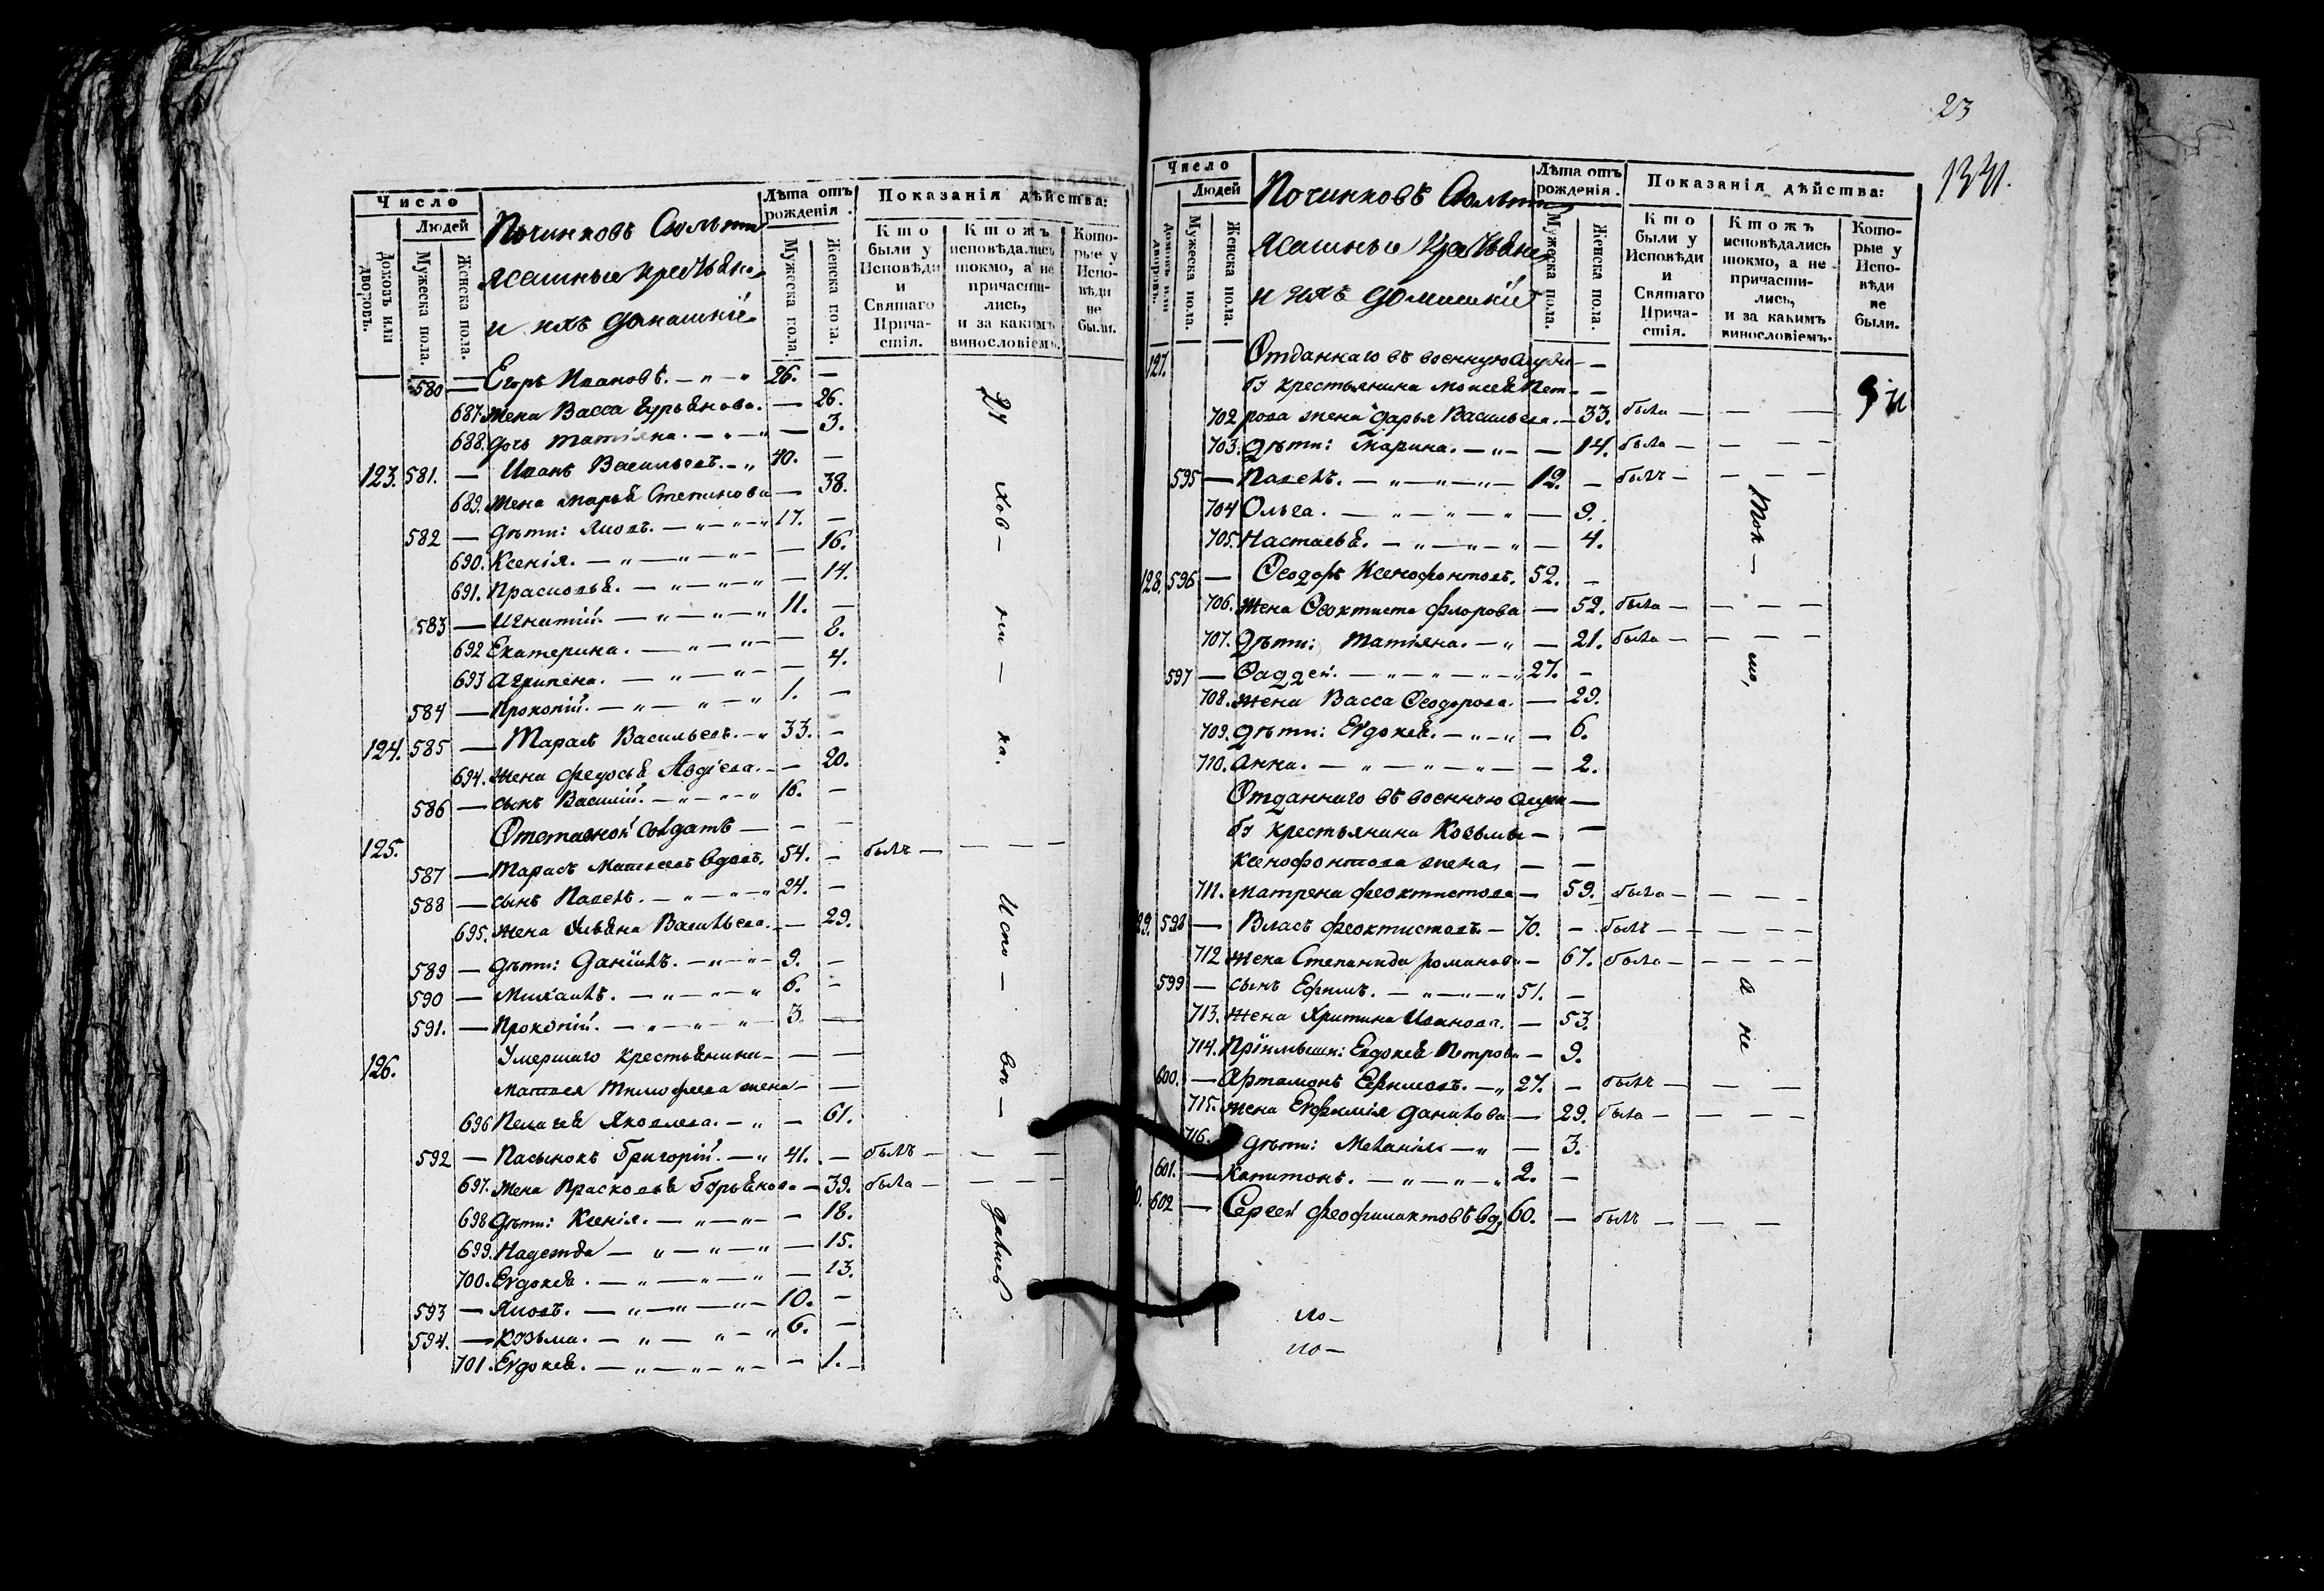 Число
Людей
Домовъ или дворовъ.
Мужеска пола.
Женска пола.
Починковъ
ясашные крестьяне
и ихъ домашніе
Лѣта отъ рожденія.
Мужеска пола.
Женска пола.
Показанія дѣйства:
Кто были у Исповѣди и Святаго Причастія.
Ктожъ исповѣдались токмо, а не причастились, и за какимъ винословіемъ.
Которые у Исповѣди не были.
580 — Егоръ Ивановъ. — „ — „ 26. —
687. жена Васса Гурьянова. — 26.
688. дочь Татіяна. — „ — „ — 3.
123. 581. — Иванъ Васильевъ. — „ 40. —
689. жена Марья Степанова — 38.
582 — дѣти: Яковъ. — „ — „ — „ 17. —
690. Ксенія. — „ — „ — „ — 16.
691. Прасковья. — „ — „ — „ — 14.
583 — Игнатій. — „ — „ — „ 11. —
692 Екатерина. — „ — „ — 8.
693 Агрипена. — „ — „ — 4.
584 — Прокопій. — „ — „ — „ 1. —
124. 585 — Тарасъ Васильевъ. — „ 33. —
694. жена Федосья Авдіева. — 20.
586 — сынъ Василій. — „ — „ — „ 16. —
125. Отставной солдатъ — — —
587 — Тарасъ Матвеевъ вдовъ. 54. — былъ — — — —
588 — сынъ Павелъ. — „ — „ — „ 24. —
695. жена Ульяна Васильева. — 29.
589 — дѣти: Даніилъ. — „ — „ — 9. —
590 — Михаилъ. — „ — „ — „ 6. —
591. — Прокопій. — „ — „ — „ 3. —
126. Умершаго крестьянина — — —
Матвея Тимофеева жена — —
696 Пелагея Яковлева. — „ — 61.
592 — Пасынокъ Григорій. — „ 41. — былъ — — —
697. жена Прасковья Гурьянова — 39. была — — — —
698 дѣти: Ксенія. — „ — „ — — 18.
699. Надежда — „ — „ — „ — 15.
700. Евдокея. — „ — „ — „ — 13.
593 — Яковъ. — „ — „ — „ — 10. —
594. — Козьма. — „ — „ — „ 6. —
701. Евдокея. — „ — „ — „ — 1. —
ду
хов —
ни —
ка.
Испо —
вѣ —
дались
23
1331.
Число
Людей
Домовъ или дворовъ.
Мужеска пола.
Женска пола.
Починковъ
ясашные крестьяне
и ихъ домашніе
Лѣта отъ рожденія.
Мужеска пола.
Женска пола.
Показанія дѣйства:
Кто были у Исповѣди и Святаго Причастія.
Ктожъ исповѣдались токмо, а не причастились, и за какимъ винословіемъ.
Которые у Исповѣди не были.
127. Отданнаго въ военную служ — —
бу крестьянина Моисея Пет — —
702 рова жена Дарья Васильева. — 33. была — — —
703. дѣти: Марина. — „ — — 14. была — — — —
595 — Павелъ. — „ — „ — „ — 12. — былъ — — — —
704 Ольга. — „ — „ — „ — 9.
705. Настасья. — „ — „ — „ — 4.
128. 596 — Ѳеодоръ Ксенофонтовъ. 52. —
706. жена Ѳеоктиста Флорова — 52. была — — — —
707. дѣти: Татіяна. — „ — 21. была — — — —
597 — Ѳаддей. — „ — „ — „ — „ 27. —
708. жена Васса Ѳеодорова. — 29.
709. дѣти: Евдокея. — „ — „ — 6.
710. Анна. — „ — „ — „ — — 2.
Отданнаго въ военную служ —
бу крестьянина Козьмы — —
Ксенофонтова жена, — —
711. Матрена Феоктистова — 59. была — — — —
598 — Власъ Феоктистовъ. — 70. — былъ — — — — —
712 жена Степанида Романова — 67. была — — — — —
599 — сынъ Ефимъ. — „ — „ — „ 51. —
713. жена Христина Иванова. — 53.
714. Пріимышъ: Евдокея Петрова — 9.
600. — Артамонъ Ефимовъ. — „ 27. — былъ — — —
715. жена Евфимія Данилова — 29. была — — — —
716. дѣти: Меланія — „ — 3.
601. — Капитонъ. — „ — „ — „ 2. —
602 — Сергей Феофилактовъ вд. 60. — былъ — — —
Ток —
мо,
а не